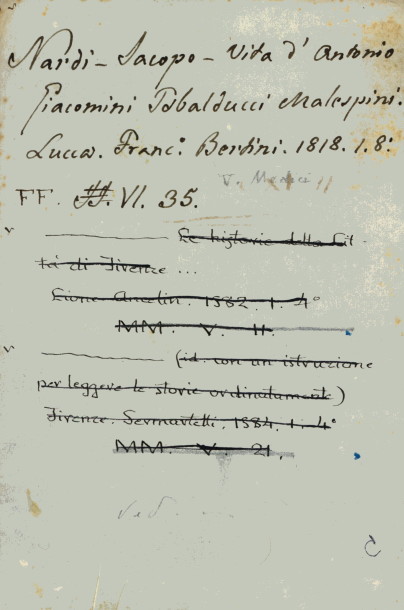 Nardi - Jacopo - Vita d' Antonio
Giacomini Tebalducci Malespini.
Lucca. Franc: Bertini. 1818. 1. 8:
V. Medici
FF. VI. 35.
Le historie della Cit
tà di Firenze ...
Lione Ancelin. 1582. 1. 4°
MM. V. 11.
(id. con un istruzione
per leggere le storie ordinatamente)
Firenze. Sermartelli. 1584. 1. 4°
MM. V. 21.
Ved.